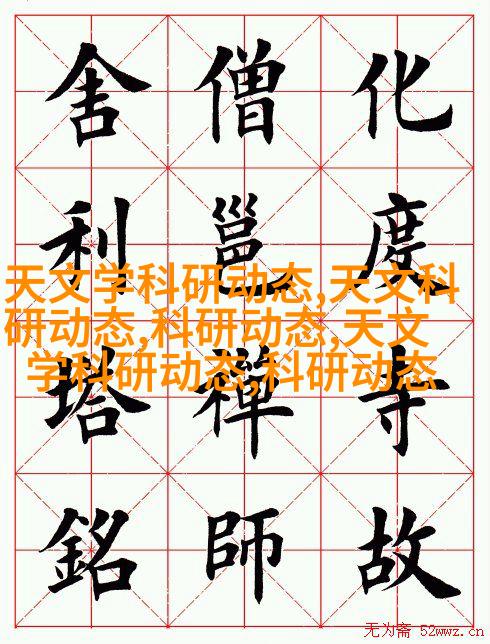 化度寺故
僧邕禪師
舍利塔銘
天文学科研动态,天文科
研动态,科研动态,天文
学科研动态,科研动态
无为斋 52wwz.cn